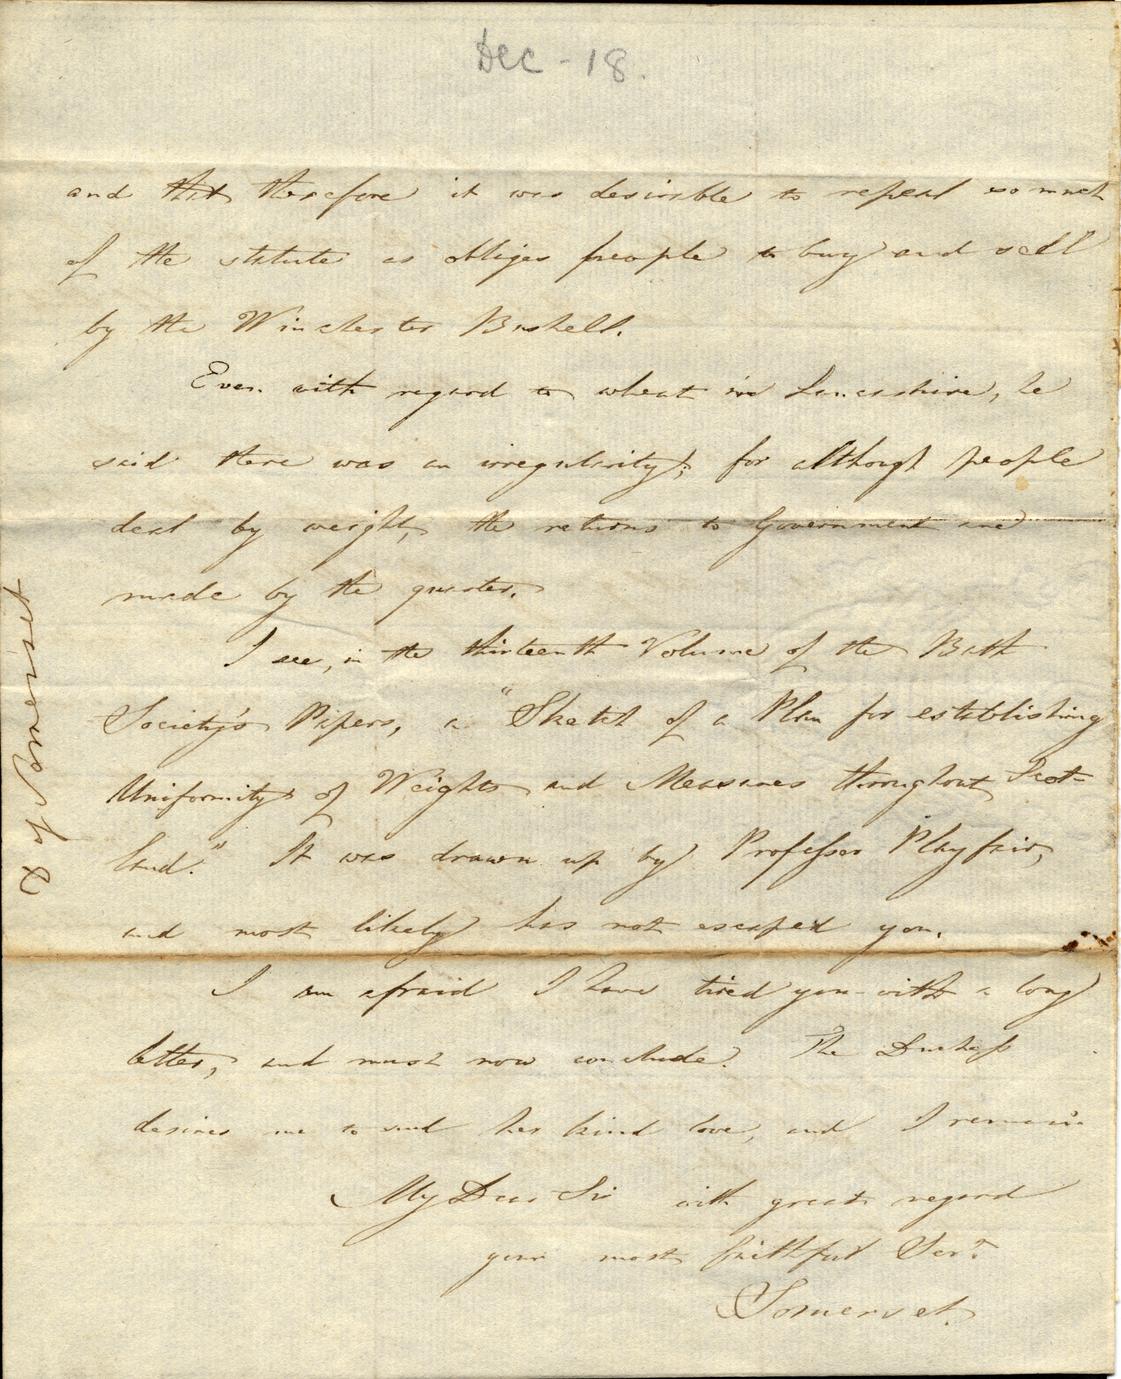 Dec - 18.
and that therefore it was desirable to repeal so much
of the statute as obliges people to buy and sell
by the Winchester Bushell.
Even with regard to wheat in Lancashire, he
said there was an irregularity; for although people
deal by weight, the returns to Government are
made by the quarter.
I see, in the thirteenth Volume of the Bath
Society's Papers, a "Sketch of a Plan for establishing
Uniformity of Weights and Measures throughout Scot-
land." It was drawn up by Professor Playfair,
and most likely has not escaped you.
I am afraid I have tired you with a long
letter, and must now conclude. The Duchess
desires me to send her kind love, and I remain
My Dear Sir with great regard
your most faithful Servt
Somerset.
D of Somerset